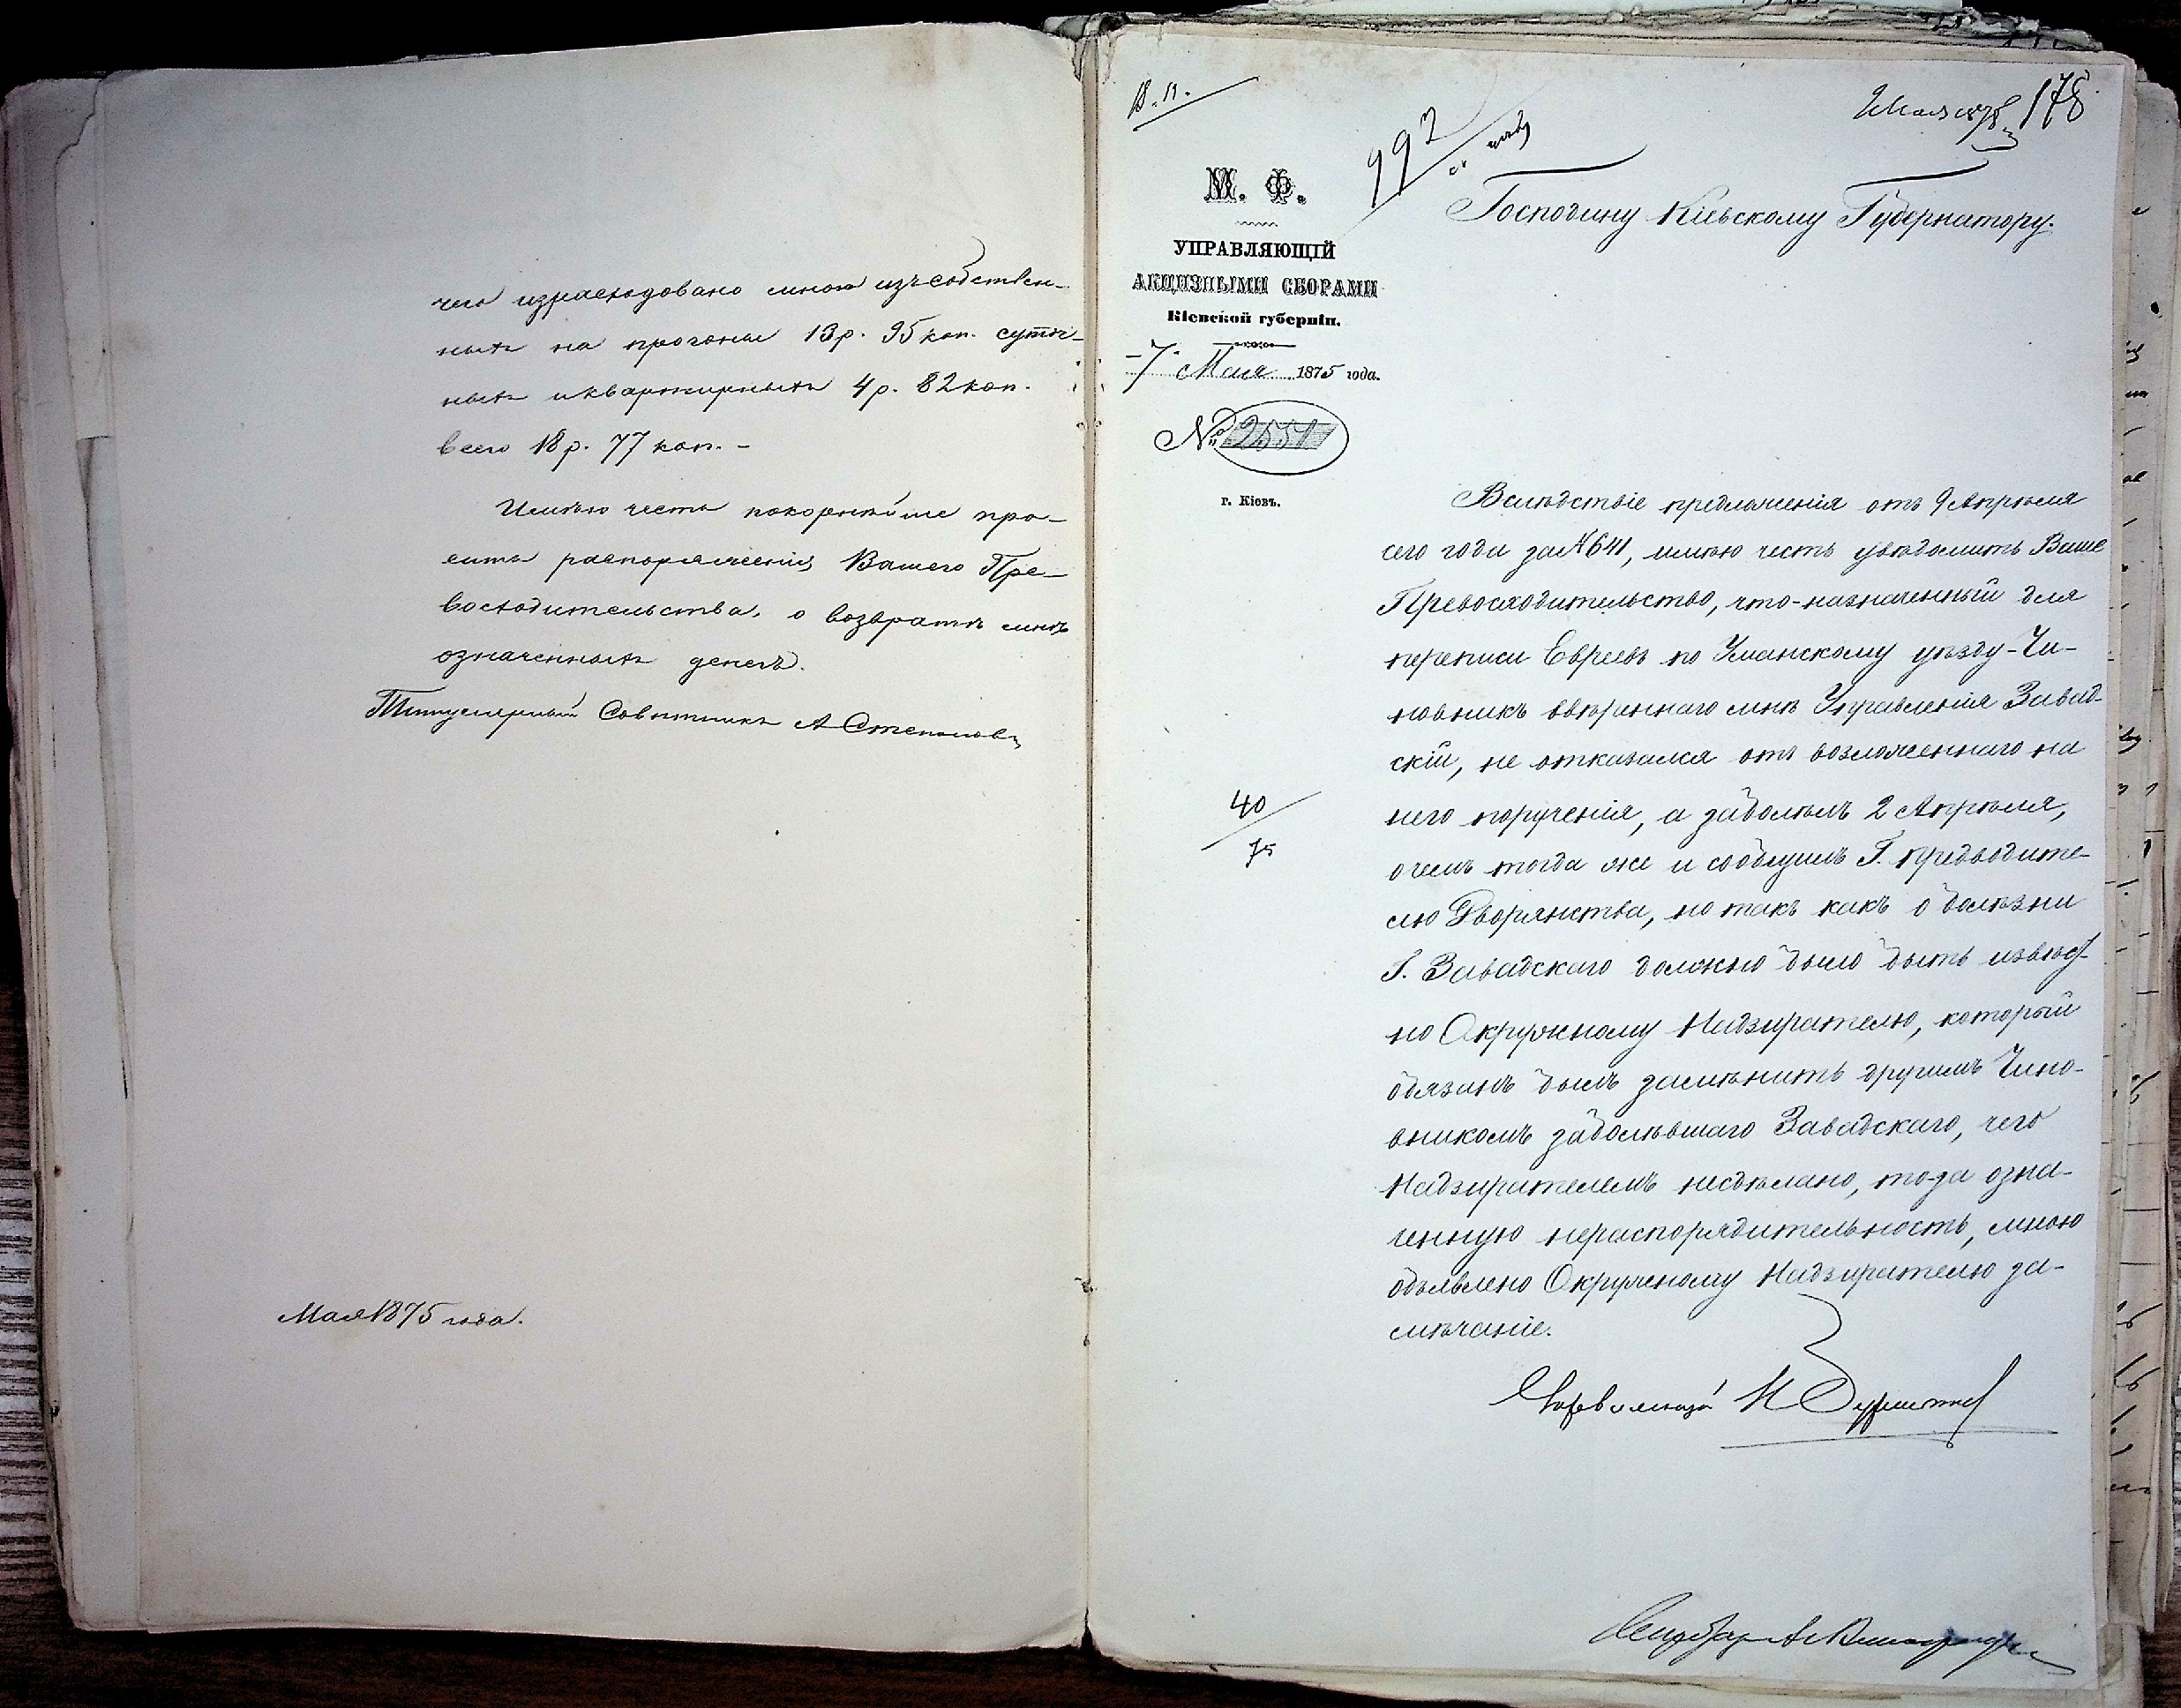 чего израсходовано мною изъ собствен-
ныхъ на прогоны 13 р. 95 коп. суточ-
ныхъ и квартирныхъ 4 р. 82 коп.
всего 18 р. 77 коп. -
Имѣю честь покорнѣйше про-
сить распоряженія Вашего Пре-
восходительства, о возвратѣ мнѣ
означенныхъ денегъ.
Титулярный Совѣтникъ А Степановъ
Мая 1875 года.
178
992
М. Ф.
УПРАВЛЯЮЩІЙ
АКЦИЗНЫМИ СБОРАМИ
Кіевской губерніи.
7 Мая 1875 года.
№ 2551
г. Кіевъ.
40
75
Господину Кіевскому Губернатору.
Вслѣдствіе предложенія отъ 9 Апрѣля
сего года за № 641, имѣю честь увѣдомить Ваше
Превосходительство, что-назначенный для
переписи Евреевъ по Уманскому уѣзду-Чи-
новникъ ввѣреннаго мнѣ Управленія Завад-
скій, не отказался отъ возложеннаго на
него порученія, а заболѣлъ 2 Апрѣля,
о чемъ тогда же и сообщилъ Г. Предводите-
лю Дворянства, но такъ какъ о болѣзни
Г. Завадскаго должно было быть извѣст-
но Окружному Надзирателю, который
обязанъ былъ замѣнить другимъ Чино-
вникомъ заболѣвшаго Завадскаго, чего
Надзирателемъ несдѣлано, то-за озна-
ченную нераспорядительность, мною
объявлено Окружному Надзирателю за-
мѣчаніе.
Управляющій